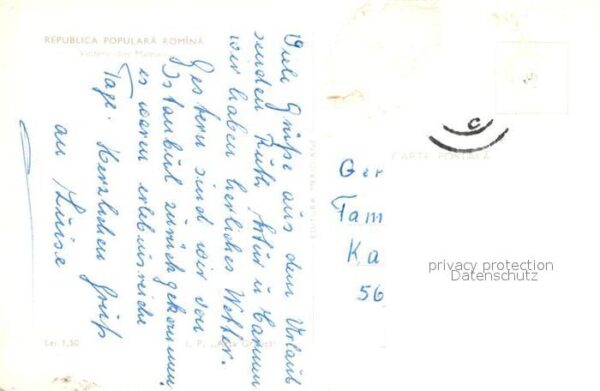 REPUBLICA POPULARĂ ROMÎNĂ
Viele Grüße aus dem Urlaub
senden Ruth, Artur u. Carmen
wir haben herrliches Wetter.
Gestern sind wir von
Istanbul zurück gekommen,
es waren erlebnisreiche
Tage. Herzlichen Gruß
an Luise
Lei 1,50
I. P.
CARTE POSTALĂ
Ger
Tam
Ka
56
privacy protection
Datenschutz